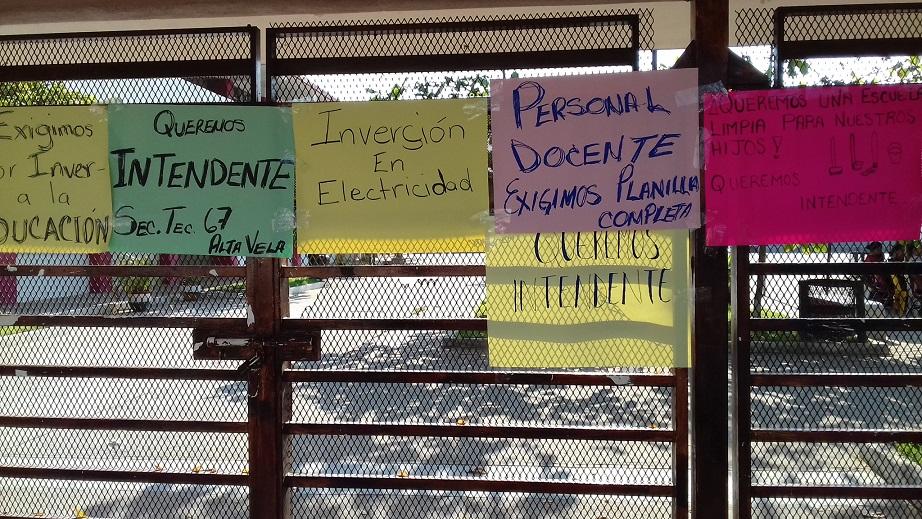 Exigimos
or Inver-
a la
DUCACIÓN
QUEREMOS
INTENDENTE
SEC. TEC. 67
ALTA VELA
Inverción
En
Electricidad
PERSONAL
DOCENTE
EXIGIMOS PLANILLA
COMPLETA
QUEREMOS
INTENDENTE
¡QUEREMOS UNA ESCUELA
LIMPIA PARA NUESTROS
HIJOS!
QUEREMOS
INTENDENTE